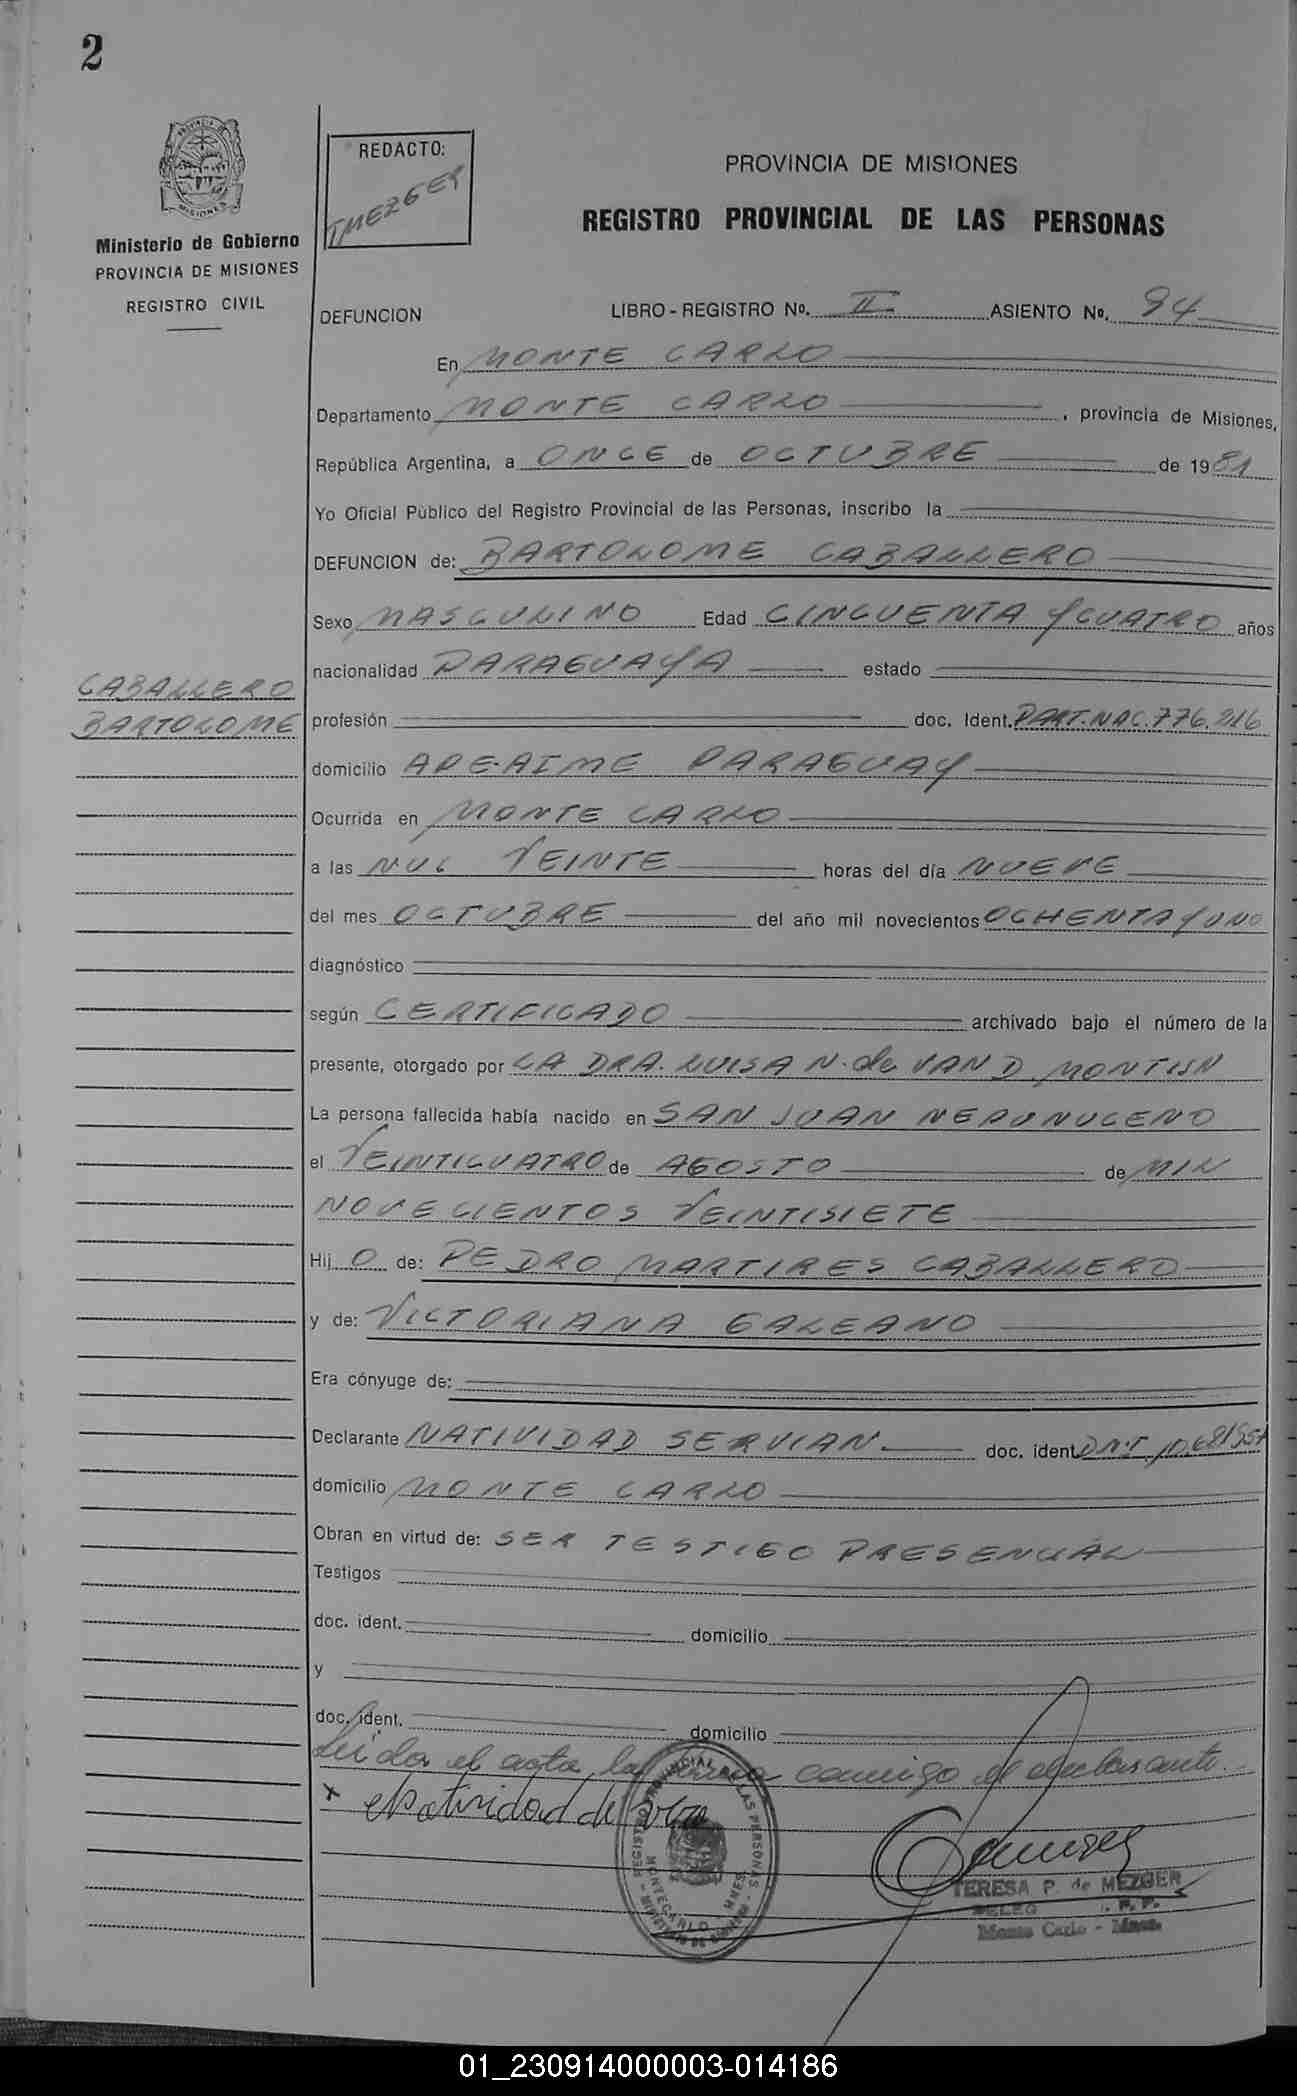 2
Ministerio de Gobierno
PROVINCIA DE MISIONES
REGISTRO CIVIL
REDACTO:
TMEZGER
PROVINCIA DE MISIONES
REGISTRO PROVINCIAL DE LAS PERSONAS
DEFUNCION LIBRO - REGISTRO No. II ASIENTO No. 94
En MONTE CARLO
Departamento MONTE CARLO, provincia de Misiones,
República Argentina, a ONCE de OCTUBRE de 1981
Yo Oficial Público del Registro Provincial de las Personas, inscribo la
DEFUNCION de: BARTOLOME CABALLERO
Sexo MASCULINO Edad CINCUENTA Y CUATRO años
nacionalidad PARAGUAYA estado
CABALLERO
BARTOLOME
profesión doc. Ident. PART. NAC. 776.216
domicilio APE-AIME PARAGUAY
Ocurrida en MONTE CARLO
a las VEINTE horas del día NUEVE
del mes OCTUBRE del año mil novecientos OCHENTA Y UNO
diagnóstico
según CERTIFICADO archivado bajo el número de la
presente, otorgado por LA DRA. LUISA N. de VAN D
La persona fallecida había nacido en SAN JUAN NEPONUCENO
el VEINTICUATRO de AGOSTO de MIL
NOVECIENTOS VEINTISIETE
Hij O de: PEDRO MARTIRES CABALLERO
y de: VICTORIANA GALEANO
Era cónyuge de:
Declarante NATIVIDAD SERVIAN doc. ident. D.N.I.
domicilio MONTE CARLO
Obran en virtud de: SER TESTIGO PRESENCIAL
Testigos
doc. ident. domicilio
y
doc. ident. domicilio
Leida el acta la firma conmigo el declarante.
x Natividad de
REGISTRO PROVINCIAL DE LAS PERSONAS
MONTECARLO MNES
TERESA P. de MEZGER
DELEG R. P.
Monte Carlo - Mnes.
01_230914000003-014186